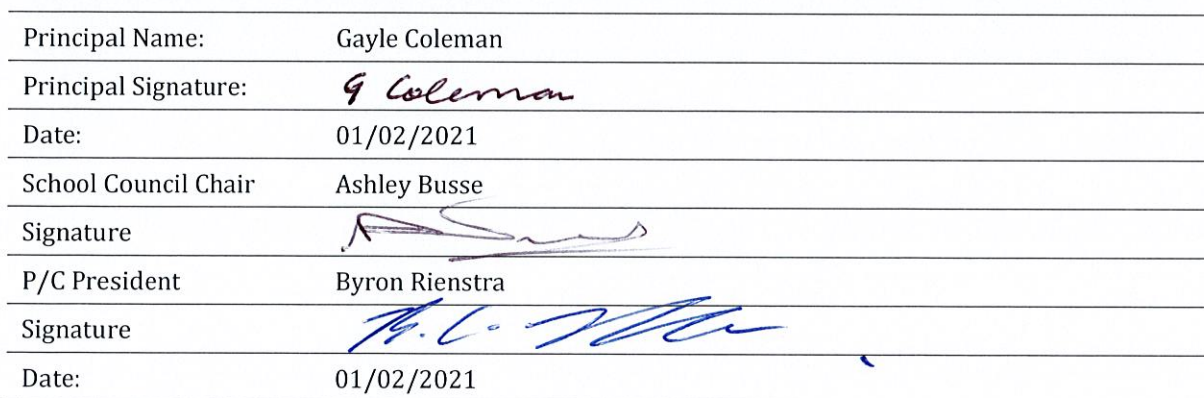 Principal Name: Gayle Coleman
Principal Signature: G Coleman
Date: 01/02/2021
School Council Chair Ashley Busse
Signature
P/C President Byron Rienstra
Signature
Date: 01/02/2021